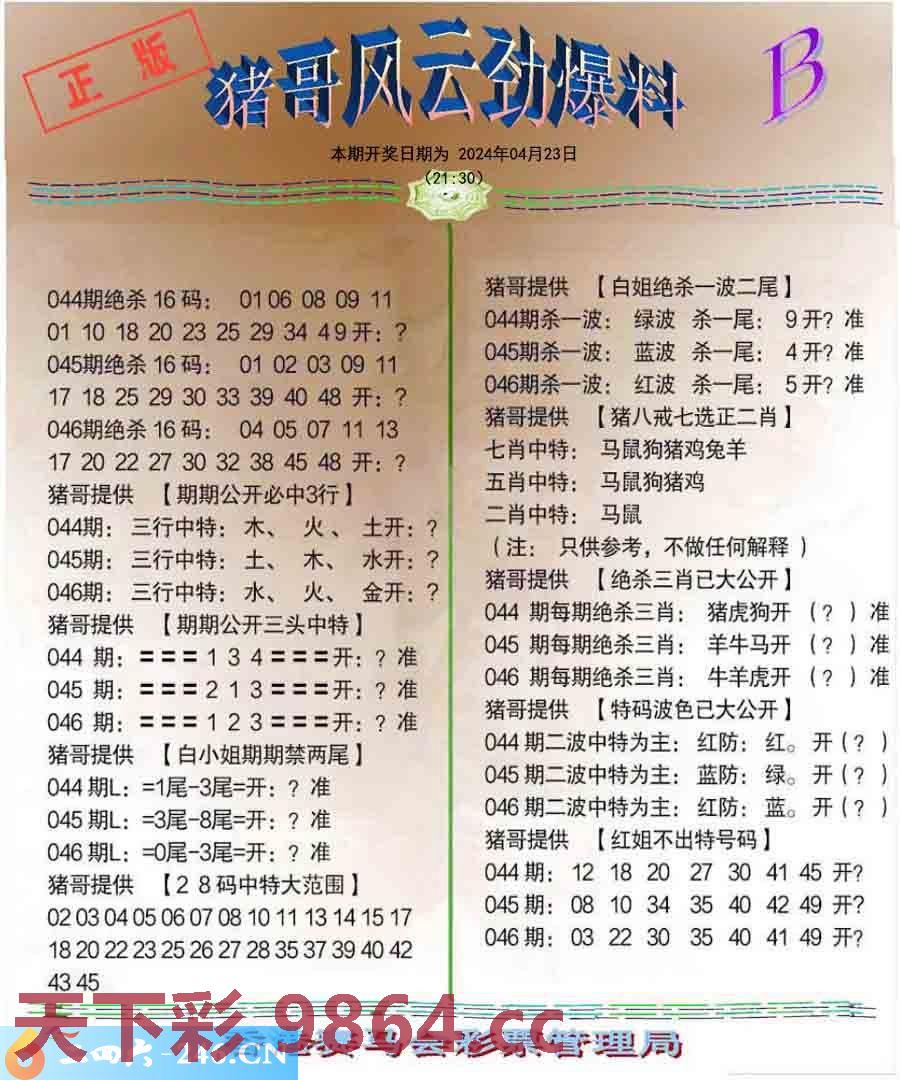 正版
猪哥风云劲爆料
B
本期开奖日期为 2024年04月23日
(21:30)
044期绝杀16码： 01 06 08 09 11
01 10 18 20 23 25 29 34 49开：?
045期绝杀16码： 01 02 03 09 11
17 18 25 29 30 33 39 40 48 开：?
046期绝杀16码： 04 05 07 11 13
17 20 22 27 30 32 38 45 48 开：?
猪哥提供 【期期公开必中3行】
044期：三行中特：木、 火、 土开：?
045期：三行中特：土、 木、 水开：?
046期：三行中特：水、 火、 金开：?
猪哥提供 【期期公开三头中特】
044 期：===1 3 4===开：? 准
045 期：===2 1 3===开：? 准
046 期：===1 2 3===开：? 准
猪哥提供 【白小姐期期禁两尾】
044期L：=1尾-3尾=开：? 准
045期L：=3尾-8尾=开：? 准
046期L：=0尾-3尾=开：? 准
猪哥提供 【28码中特大范围】
02 03 04 05 06 07 08 10 11 13 14 15 17
18 20 22 23 25 26 27 28 35 37 39 40 42
43 45
猪哥提供 【白姐绝杀一波二尾】
044期杀一波： 绿波 杀一尾： 9开? 准
045期杀一波： 蓝波 杀一尾： 4开? 准
046期杀一波： 红波 杀一尾： 5开? 准
猪哥提供 【猪八戒七选正二肖】
七肖中特： 马鼠狗猪鸡兔羊
五肖中特： 马鼠狗猪鸡
二肖中特： 马鼠
（注： 只供参考，不做任何解释 ）
猪哥提供 【绝杀三肖已大公开】
044 期每期绝杀三肖： 猪虎狗开 （? ）准
045 期每期绝杀三肖： 羊牛马开 （? ）准
046 期每期绝杀三肖： 牛羊虎开 （? ）准
猪哥提供 【特码波色已大公开】
044期二波中特为主：红防：红。开（? ）
045期二波中特为主：蓝防：绿。开（? ）
046期二波中特为主：红防：蓝。开（? ）
猪哥提供 【红姐不出特号码】
044期： 12 18 20 27 30 41 45 开?
045期： 08 10 34 35 40 42 49 开?
046期： 03 22 30 35 40 41 49 开?
天下彩 9864.cc
二四六-246.CN
赛马会彩票管理局